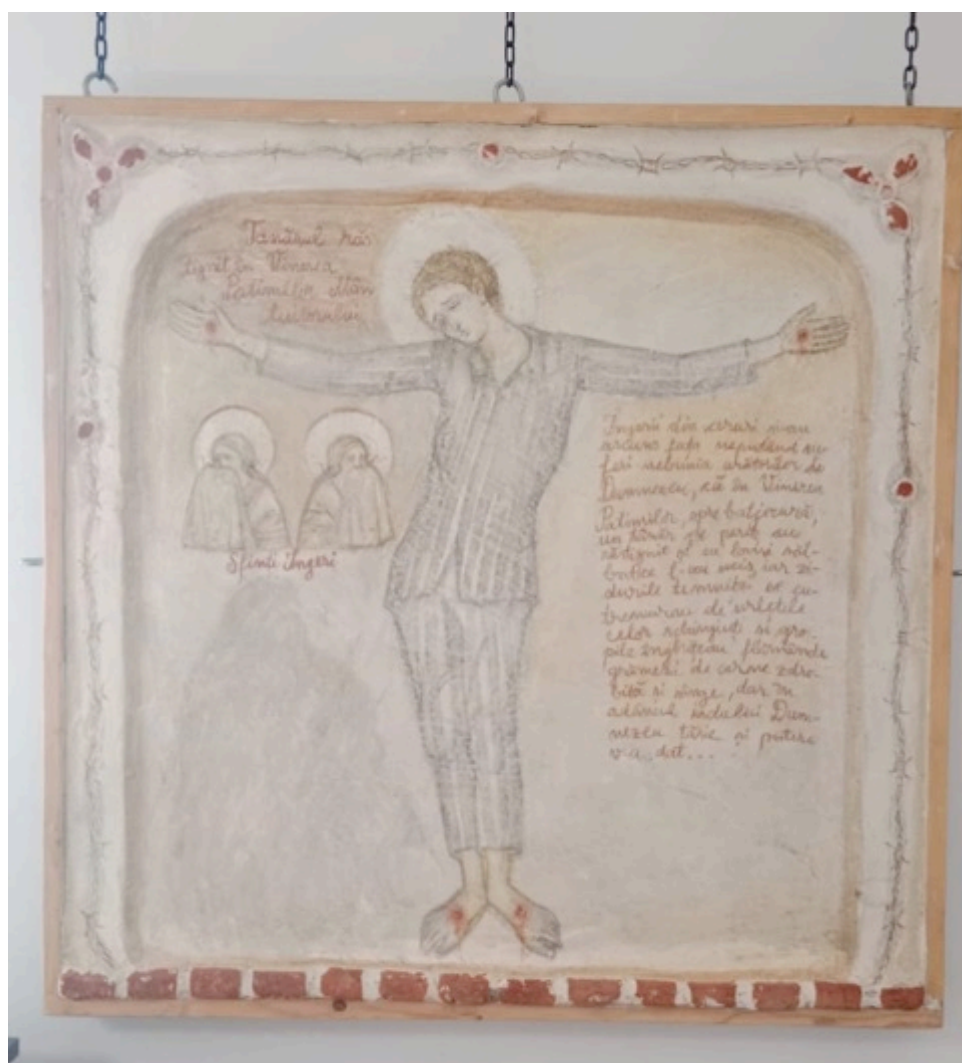 Tânărul răs
tignit în Vinerea
Patimilor Mân
tuitorului
Sfinți Îngeri
Îngerii din ceruri și-au
ascuns fața neputând su-
feri nebunia urâtorilor de
Dumnezeu, că în Vinerea
Patimilor, spre batjocură,
un tânăr pe perete au
răstignit și cu lovituri săl-
batice l-au ucis iar zi-
durile temniței se cu-
tremurau de urletele
celor schingiuiți si gro-
pile înghițeau flămânde
grămezi de carne zdro-
bită și sânge, dar în
adâncul iadului Dum-
nezeu tărie și putere
v-a dat...